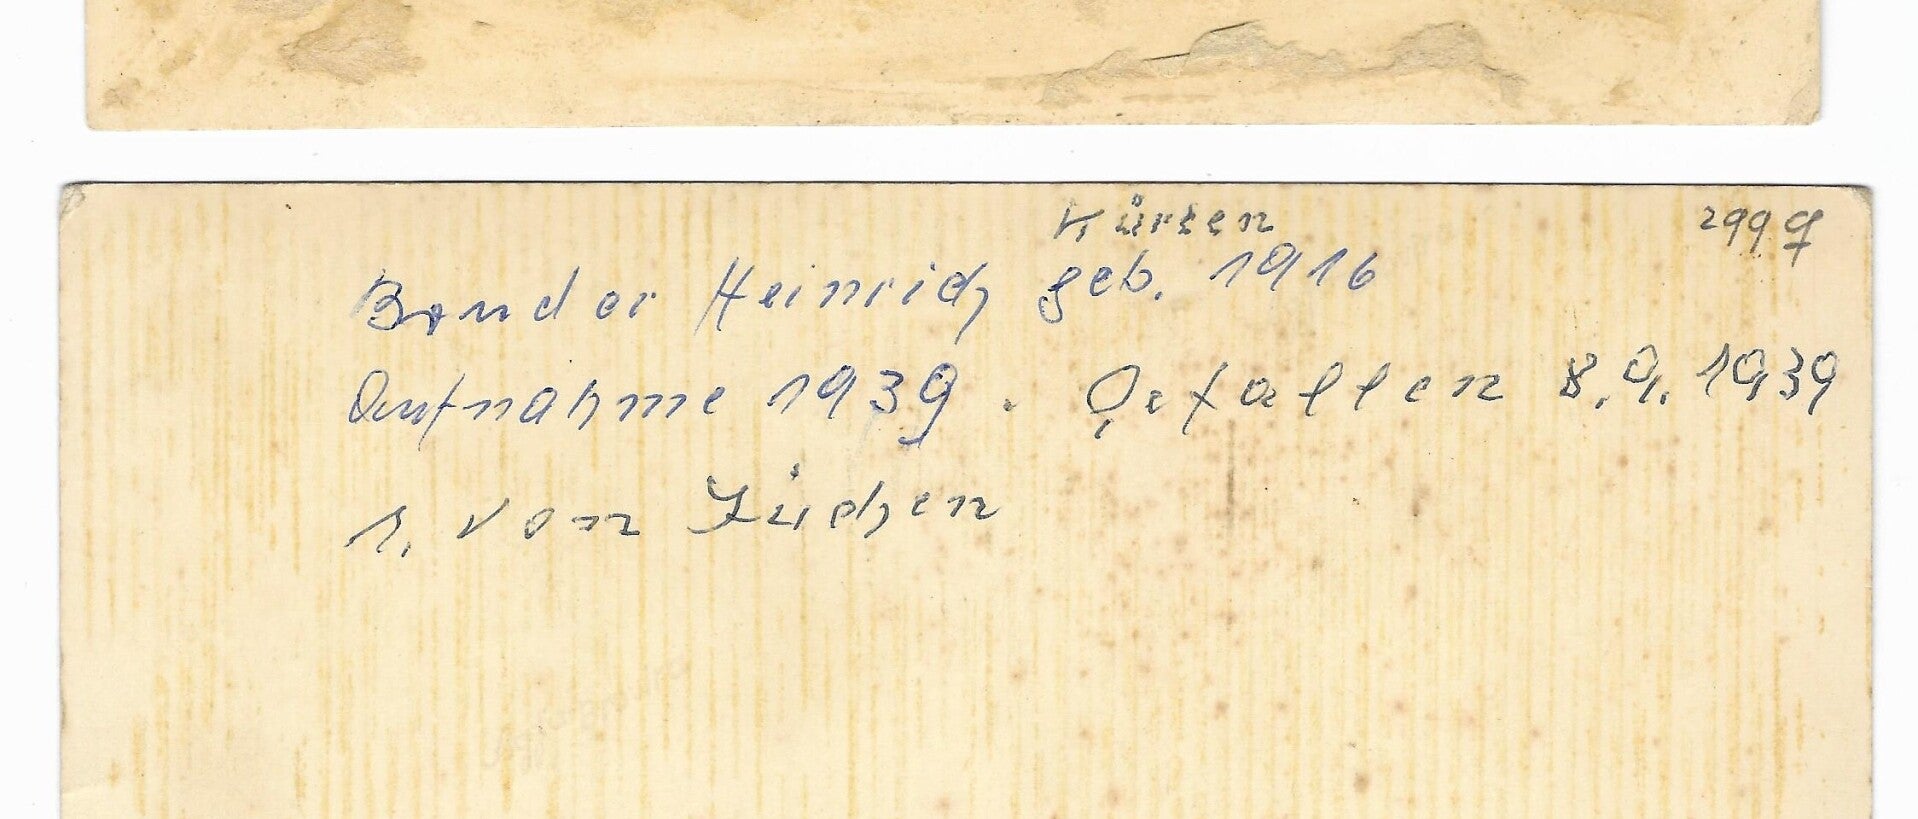 Kürten 2999
Bruder Heinrich geb. 1916
Aufnahme 1939. Gefallen 8.9.1939
1. von Jüchen